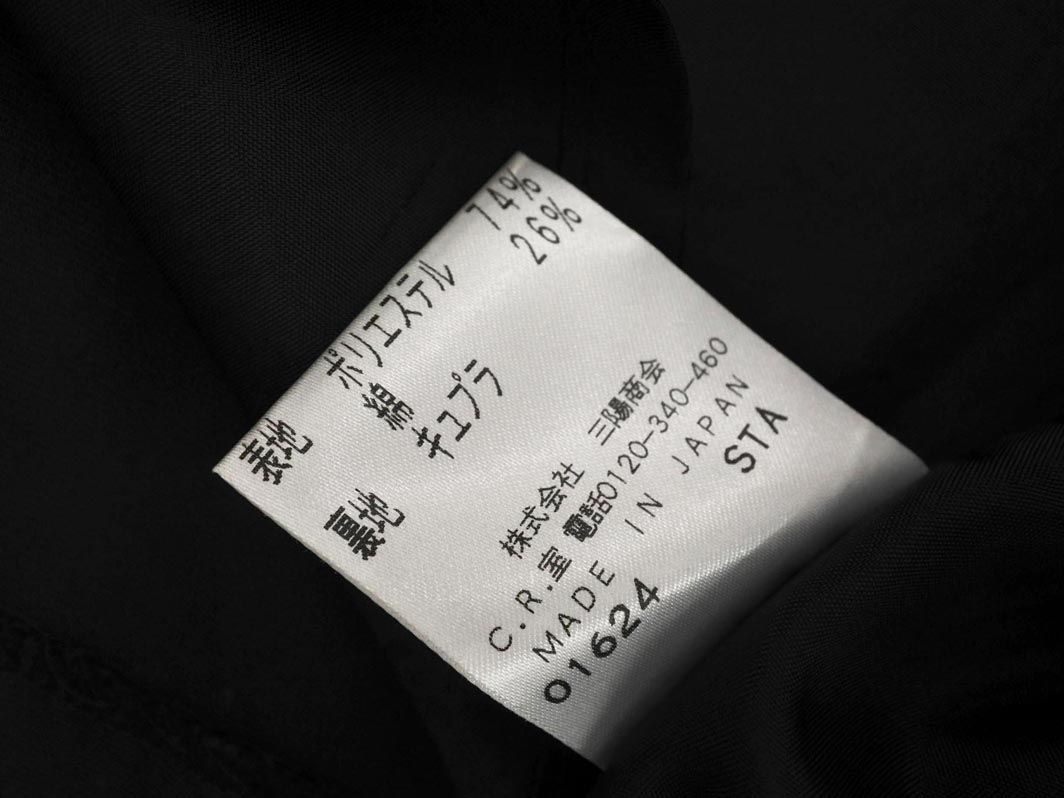 表地 ポリエステル 74%
綿 26%
裏地 キュプラ
株式会社 三陽商会
C.R.室 電話0120-340-460
MADE IN JAPAN
01624 STA